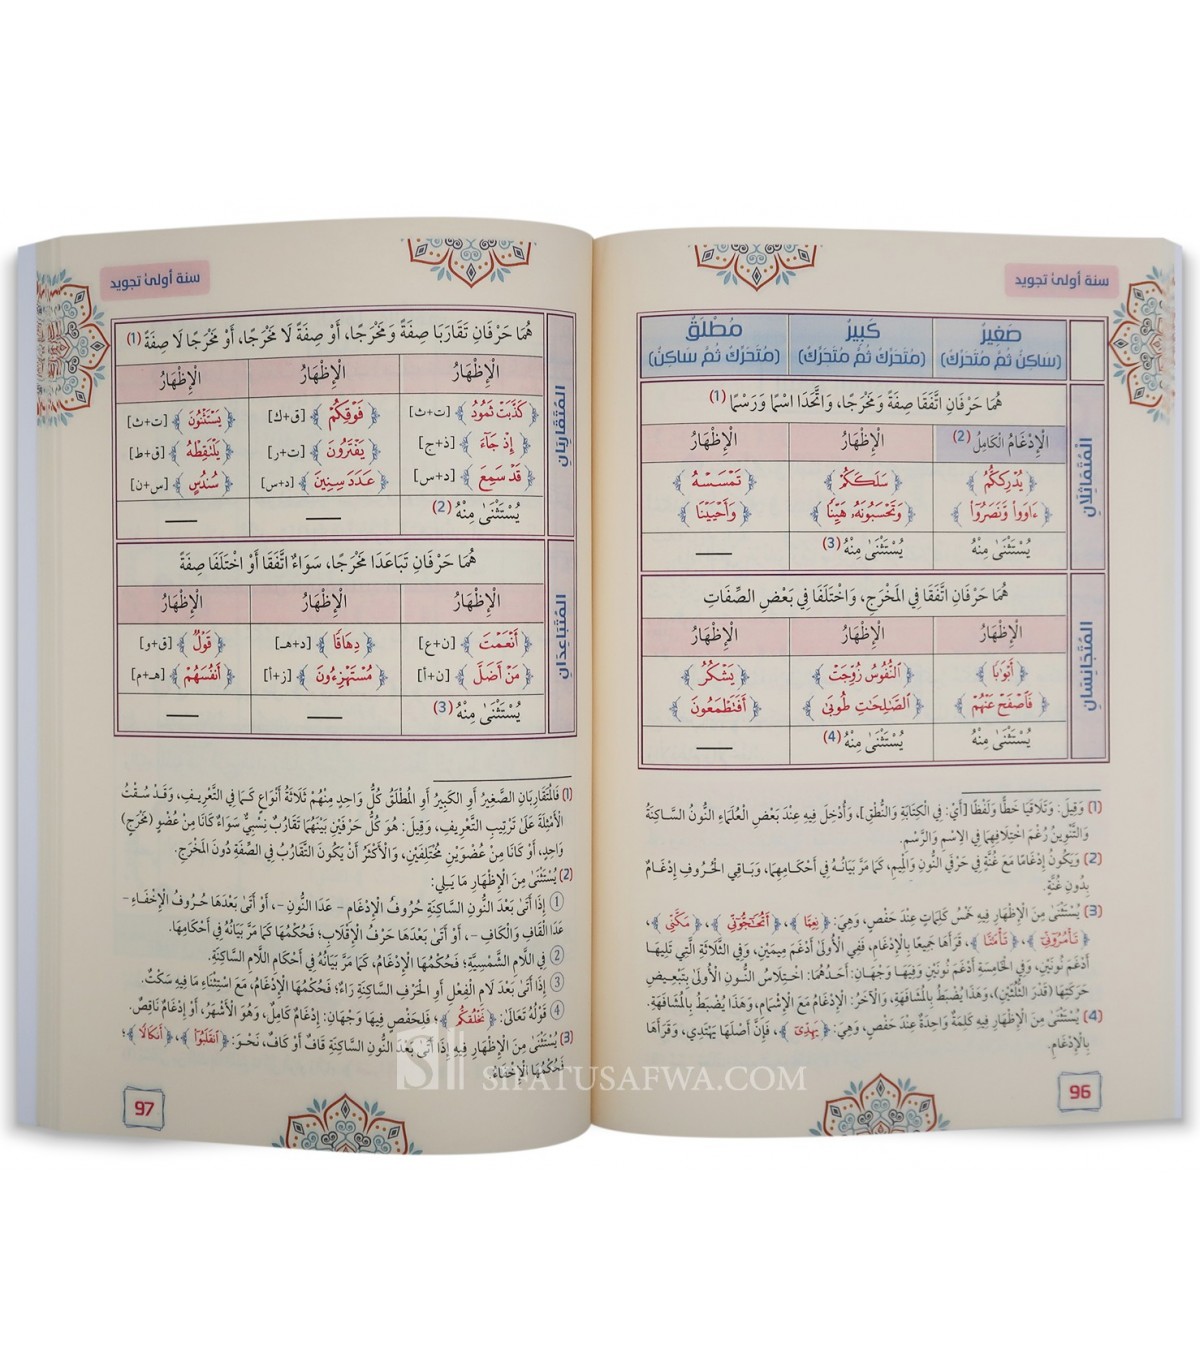 سنة أولىٰ تجويد
صَغِيرٌ كَبِيرٌ مُطْلَقٌ
(سَاكِنٌ ثُمَّ مُتَحَرِّكٌ) (مُتَحَرِّكٌ ثُمَّ مُتَحَرِّكٌ) (مُتَحَرِّكٌ ثُمَّ سَاكِنٌ)
المُتَمَاثِلَانِ
هُمَا حَرْفَانِ اتَّفَقَا صِفَةً وَمَخْرَجًا، وَاتَّحَدَا اسْمًا وَرَسْمًا (1)
الْإِدْغَامُ الْكَامِلُ (2) الْإِظْهَارُ الْإِظْهَارُ
﴿يُدْرِككُّمُ﴾ ﴿سَلَكَكُمْ﴾ ﴿تَمْسَسْهُ﴾
﴿ءَاوَوا۟ وَّنَصَرُوٓا۟﴾ ﴿وَتَحْسَبُونَهُۥ هَيِّنًا﴾ ﴿وَأَحْيَيْنَا﴾
يُسْتَثْنَىٰ مِنْهُ يُسْتَثْنَىٰ مِنْهُ (3) ——
المُتَجَانِسَانِ
هُمَا حَرْفَانِ اتَّفَقَا فِي المَخْرَجِ، وَاخْتَلَفَا فِي بَعْضِ الصِّفَاتِ
الْإِظْهَارُ الْإِظْهَارُ الْإِظْهَارُ
﴿أَبْوَٰبًا﴾ ﴿ٱلنُّفُوسُ زُوِّجَتْ﴾ ﴿يَشْكُرُ﴾
﴿فَٱصْفَحْ عَنْهُمْ﴾ ﴿ٱلصَّـٰلِحَـٰتِ طُوبَىٰ﴾ ﴿أَفَتَطْمَعُونَ﴾
يُسْتَثْنَىٰ مِنْهُ يُسْتَثْنَىٰ مِنْهُ (4) ——
(1) وَقِيلَ: وَتَلَاقَيَا خَطًّا وَلَفْظًا [أَيْ: فِي الْكِتَابَةِ وَالنُّطْقِ]، وَأُدْخِلَ فِيهِ عِنْدَ بَعْضِ الْعُلَمَاءِ النُّونُ السَّاكِنَةُ
وَالتَّنْوِينُ رُغْمَ اخْتِلَافِهِمَا فِي الِاسْمِ وَالرَّسْمِ.
(2) وَيَكُونُ إِدْغَامًا مَعَ غُنَّةٍ فِي حَرْفَيِ النُّونِ وَالْمِيمِ، كَمَا مَرَّ بَيَانُهُ فِي أَحْكَامِهِمَا، وَبَاقِي الْحُرُوفِ إِدْغَامٌ
بِدُونِ غُنَّةٍ.
(3) يُسْتَثْنَىٰ مِنَ الْإِظْهَارِ فِيهِ خَمْسُ كَلِمَاتٍ عِنْدَ حَفْصٍ، وَهِيَ: ﴿نِعِمَّا﴾، ﴿أَتُحَـٰٓجُّوٓنِّى﴾، ﴿مَكَّنِّى﴾،
﴿تَأْمُرُوٓنِّىٓ﴾، ﴿تَأْمَ۫نَّا﴾، قَرَأَهَا جَمِيعًا بِالْإِدْغَامِ، فَفِي الْأُولَىٰ أَدْغَمَ مِيمَيْنِ، وَفِي الثَّلَاثَةِ الَّتِي تَلِيهَا
أَدْغَمَ نُونَيْنِ، وَفِي الْخَامِسَةِ أَدْغَمَ نُونَيْنِ وَفِيهَا وَجْهَانِ: أَحَدُهُمَا: اخْتِلَاسُ النُّونِ الْأُولَىٰ بِتَبْعِيضِ
حَرَكَتِهَا (قَدْرَ الثُّلُثَيْنِ)، وَهَذَا يُضْبَطُ بِالْمُشَافَهَةِ، وَالْآخَرُ: الْإِدْغَامُ مَعَ الْإِشْمَامِ، وَهَذَا يُضْبَطُ بِالْمُشَافَهَةِ.
(4) يُسْتَثْنَىٰ مِنَ الْإِظْهَارِ فِيهِ كَلِمَةٌ وَاحِدَةٌ عِنْدَ حَفْصٍ، وَهِيَ: ﴿يَهِدِّىٓ﴾، فَإِنَّ أَصْلَهَا يَهْتَدِي، وَقَرَأَهَا
بِالْإِدْغَامِ.
96
سنة أولىٰ تجويد
المُتَقَارِبَانِ
هُمَا حَرْفَانِ تَقَارَبَا صِفَةً وَمَخْرَجًا، أَوْ صِفَةً لَا مَخْرَجًا، أَوْ مَخْرَجًا لَا صِفَةً (1)
الْإِظْهَارُ الْإِظْهَارُ الْإِظْهَارُ
﴿كَذَّبَتْ ثَمُودُ﴾ [ت+ث] ﴿فَوْقِكُمْ﴾ [ق+ك] ﴿يَسْتَثْنُونَ﴾ [ت+ث]
﴿إِذْ جَآءَ﴾ [ذ+ج] ﴿يَفْتَرُونَ﴾ [ت+ر] ﴿يَلْتَقِطْهُ﴾ [ق+ط]
﴿قَدْ سَمِعَ﴾ [د+س] ﴿عَدَدَ سِنِينَ﴾ [د+س] ﴿سُندُسٍ﴾ [س+ن]
يُسْتَثْنَىٰ مِنْهُ (2) —— ——
المُتَبَاعِدَانِ
هُمَا حَرْفَانِ تَبَاعَدَا مَخْرَجًا، سَوَاءٌ اتَّفَقَا أَوْ اخْتَلَفَا صِفَةً
الْإِظْهَارُ الْإِظْهَارُ الْإِظْهَارُ
﴿أَنْعَمْتَ﴾ [ن+ع] ﴿دِهَاقًا﴾ [د+هـ] ﴿قَوْلٌ﴾ [ق+و]
﴿مَنْ أَضَلَّ﴾ [ن+أ] ﴿مُسْتَهْزِءُونَ﴾ [ز+أ] ﴿أَنفُسَهُمْ﴾ [هـ+م]
يُسْتَثْنَىٰ مِنْهُ (3) —— ——
(1) فَالْمُتَقَارِبَانِ الصَّغِيرُ أَوِ الْكَبِيرُ أَوِ الْمُطْلَقُ كُلُّ وَاحِدٍ مِنْهُمْ ثَلَاثَةُ أَنْوَاعٍ كَمَا فِي التَّعْرِيفِ، وَقَدْ سُقْتُ
الْأَمْثِلَةَ عَلَىٰ تَرْتِيبِ التَّعْرِيفِ، وَقِيلَ: هُوَ كُلُّ حَرْفَيْنِ بَيْنَهُمَا تَقَارُبٌ نِسْبِيٌّ سَوَاءٌ كَانَا مِنْ عُضْوٍ (مَخْرَجٍ)
وَاحِدٍ، أَوْ كَانَا مِنْ عُضْوَيْنِ مُخْتَلِفَيْنِ، وَالْأَكْثَرُ أَنْ يَكُونَ التَّقَارُبُ فِي الصِّفَةِ دُونَ الْمَخْرَجِ.
(2) يُسْتَثْنَىٰ مِنَ الْإِظْهَارِ مَا يَلِي:
① إِذَا أَتَىٰ بَعْدَ النُّونِ السَّاكِنَةِ حُرُوفُ الْإِدْغَامِ – عَدَا النُّونِ –، أَوْ أَتَىٰ بَعْدَهَا حُرُوفُ الْإِخْفَاءِ –
عَدَا الْقَافِ وَالْكَافِ –، أَوْ أَتَىٰ بَعْدَهَا حَرْفُ الْإِقْلَابِ؛ فَحُكْمُهَا كَمَا مَرَّ بَيَانُهُ فِي أَحْكَامِهَا.
② فِي اللَّامِ الشَّمْسِيَّةِ؛ فَحُكْمُهَا الْإِدْغَامُ، كَمَا مَرَّ بَيَانُهُ فِي أَحْكَامِ اللَّامِ السَّاكِنَةِ.
③ إِذَا أَتَىٰ بَعْدَ لَامِ الْفِعْلِ أَوِ الْحَرْفِ السَّاكِنَةِ رَاءٌ؛ فَحُكْمُهَا الْإِدْغَامُ، مَعَ اسْتِثْنَاءِ مَا فِيهِ سَكْتٌ.
④ قَوْلُهُ تَعَالَىٰ: ﴿نَخْلُقكُّم﴾؛ فَلِحَفْصٍ فِيهَا وَجْهَانِ: إِدْغَامٌ كَامِلٌ، وَهُوَ الْأَشْهَرُ، أَوْ إِدْغَامٌ نَاقِصٌ.
(3) يُسْتَثْنَىٰ مِنَ الْإِظْهَارِ فِيهِ إِذَا أَتَىٰ بَعْدَ النُّونِ السَّاكِنَةِ قَافٌ أَوْ كَافٌ، نَحْوَ: ﴿ٱنقَلَبُوٓا۟﴾، ﴿أَنكَالًا﴾؛
فَحُكْمُهَا الْإِخْفَاءُ.
97
SIFATUSAFWA.COM